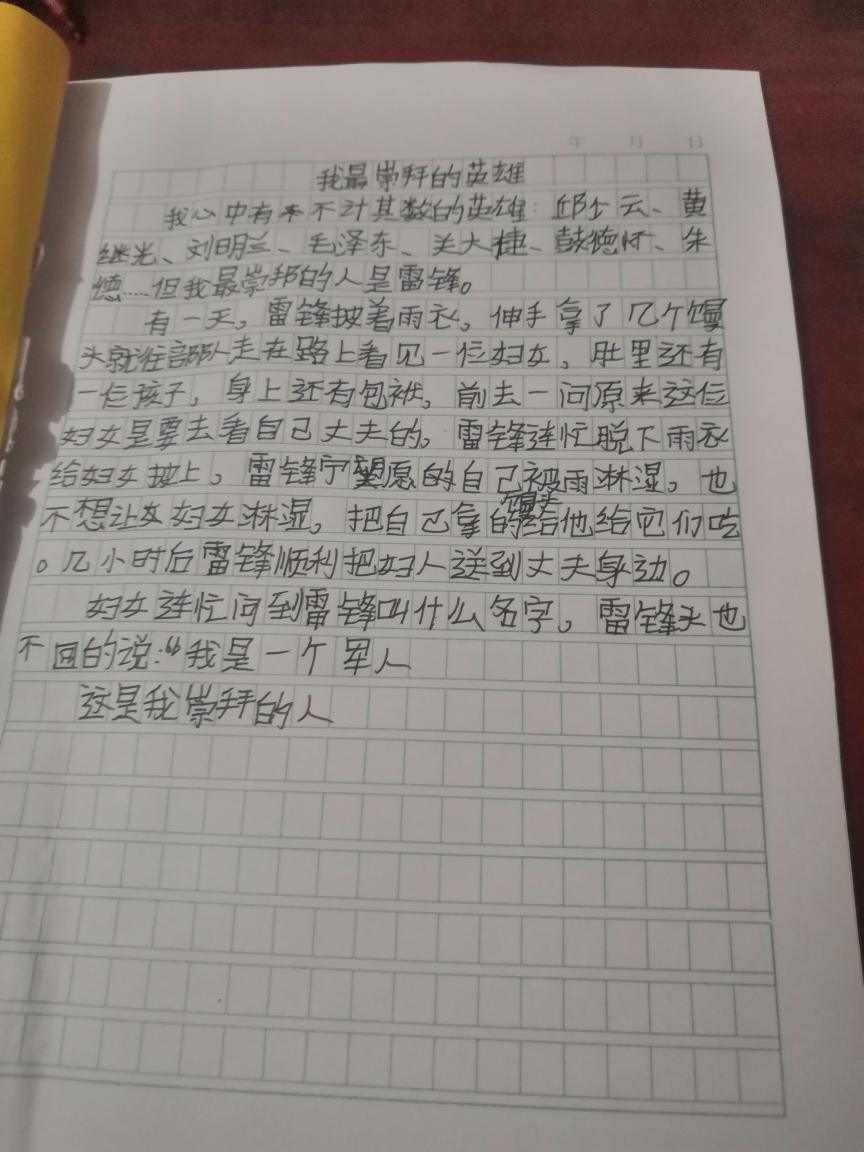 年 月 日
我最崇拜的英雄
我心中有不计其数的英雄：邱少云、黄
继光、刘明兰、毛泽东、关大捷、彭德怀、朱
德……但我最崇邦的人是雷锋。
有一天，雷锋披着雨衣，伸手拿了几个馒
头就往部队走在路上看见一位妇女，肚里还有
一位孩子，身上还有包袱，前去一问原来这位
妇女是要去看自己丈夫的，雷锋连忙脱下雨衣
给妇女披上，雷锋宁愿的自己被雨淋湿，也
不想让女妇女淋湿，把自己拿的馒头给他给它们吃
。几小时后雷锋顺利把妇人送到丈夫身边。
妇女连忙问到雷锋叫什么名字，雷锋头也
不回的说：“我是一个军人
这是我崇拜的人